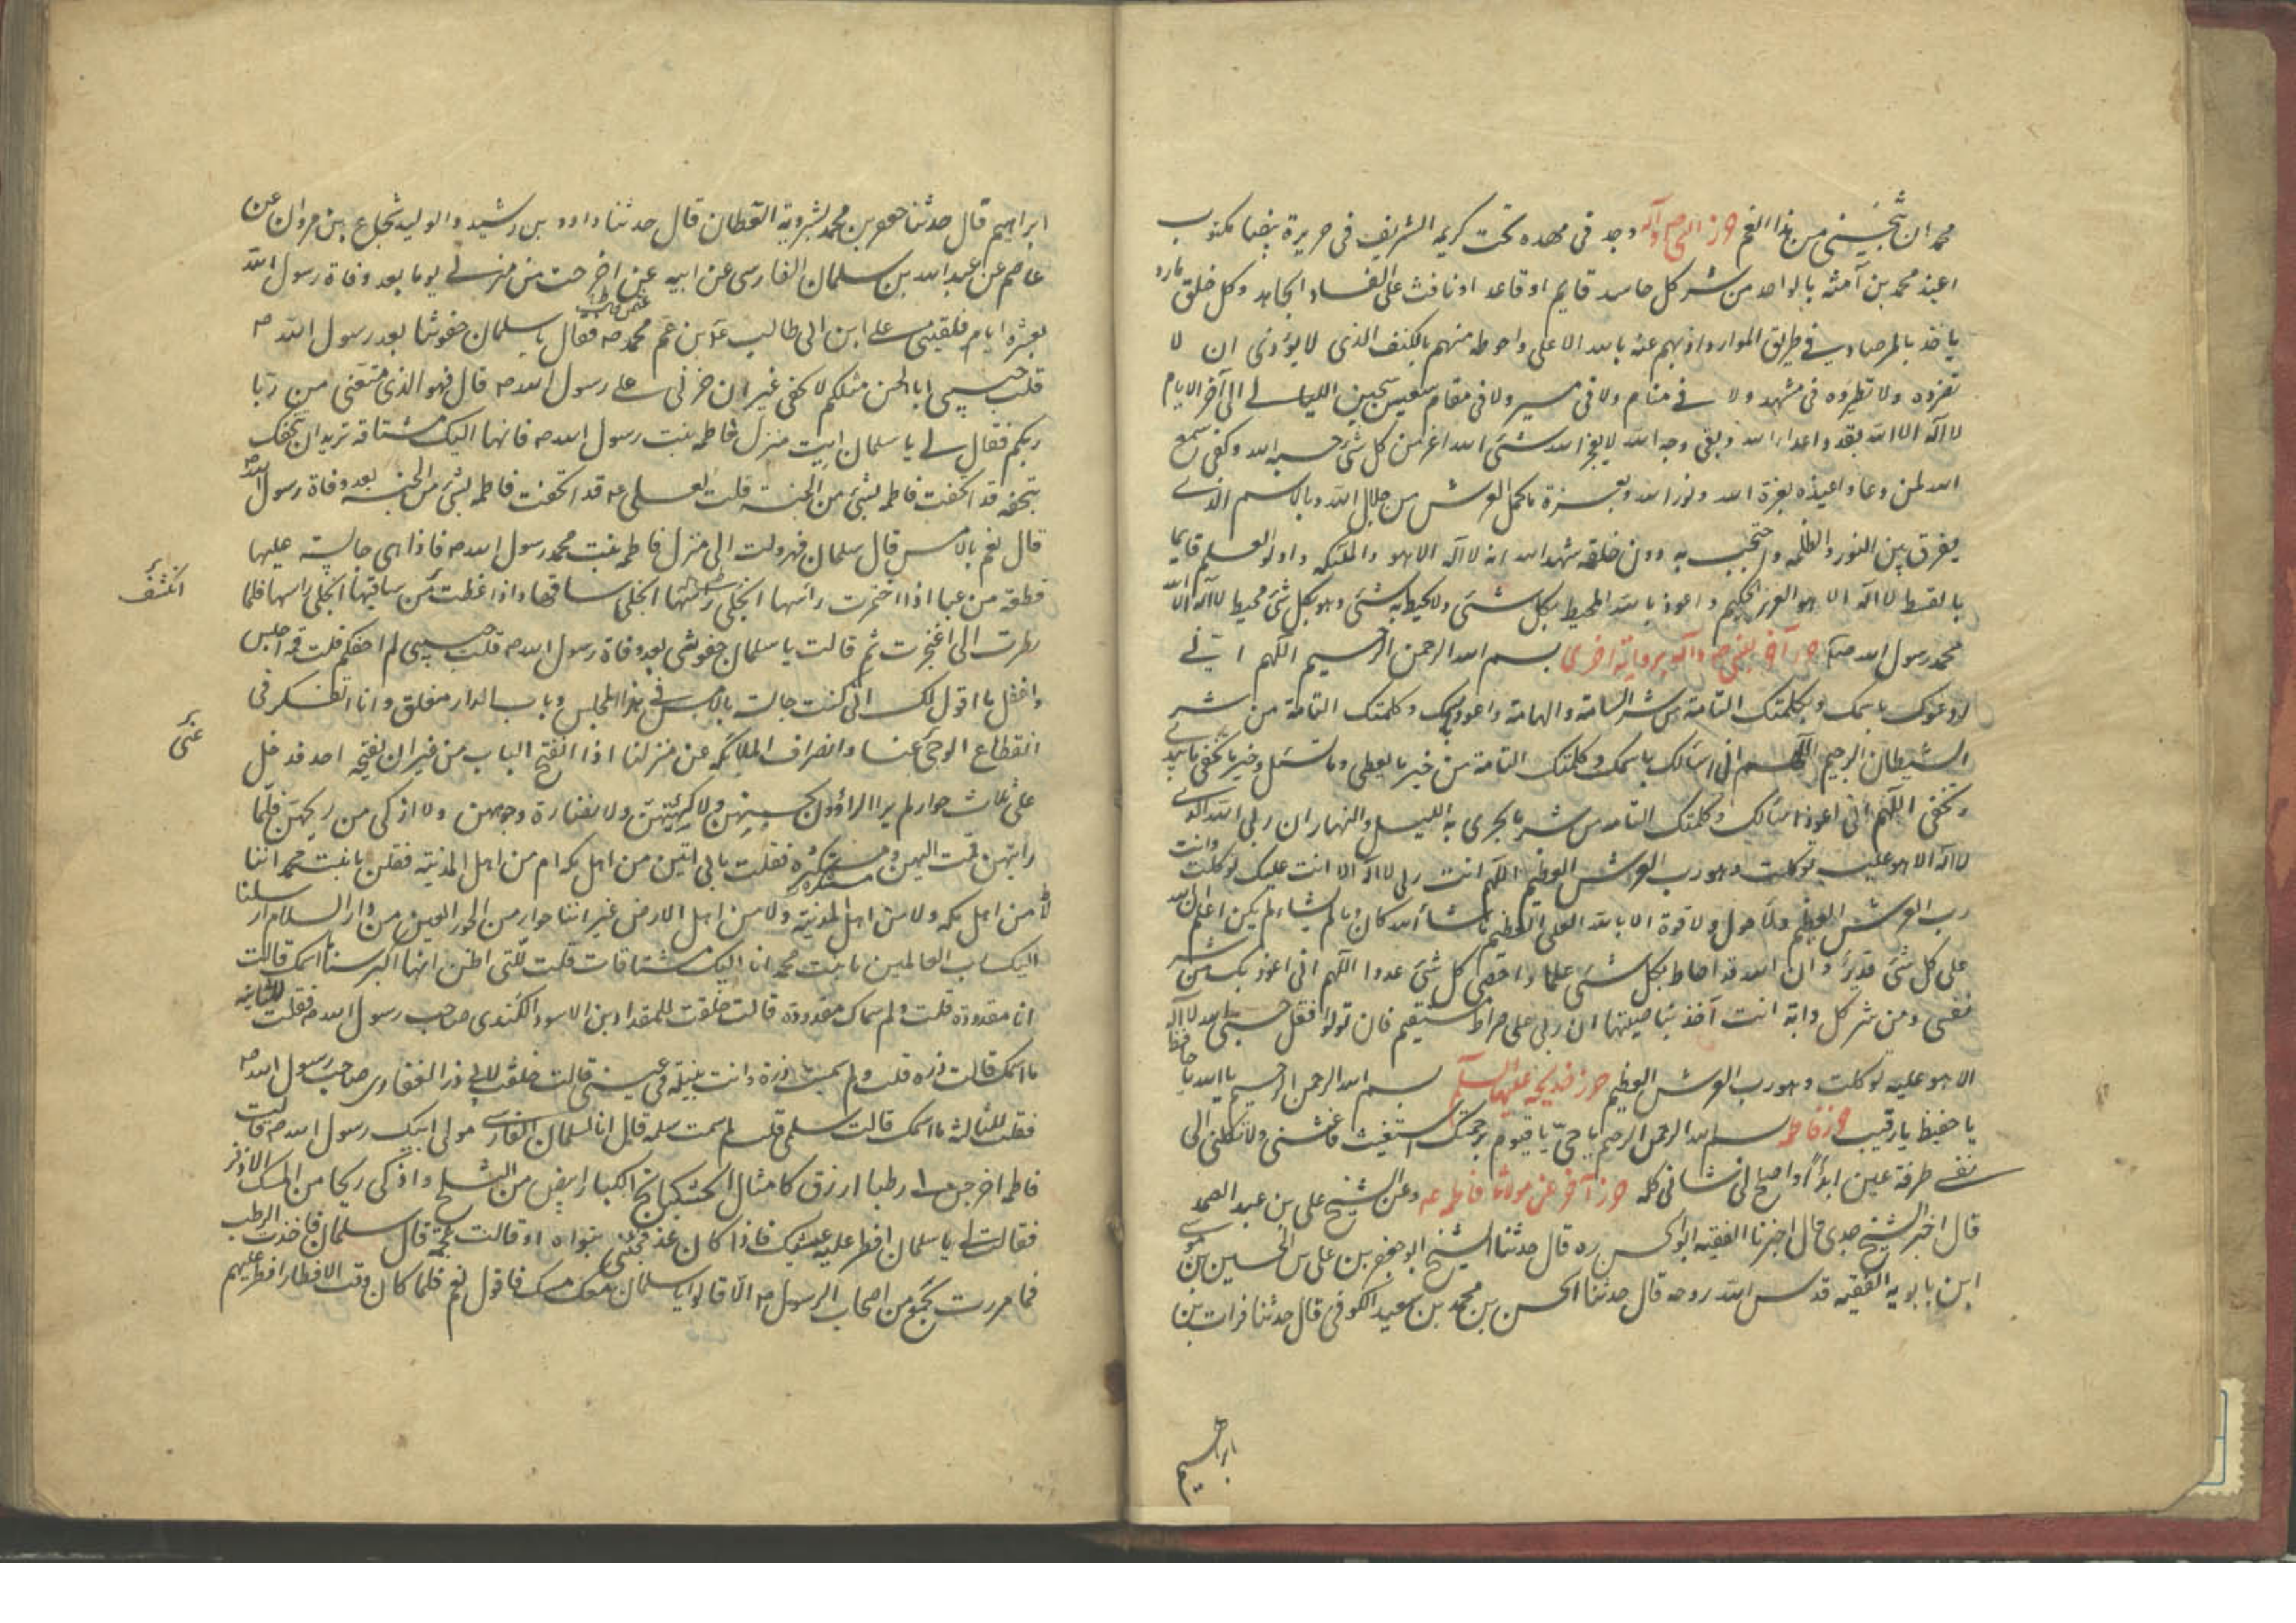 محمد ان تنجيني من هذا الغم حرز النبي ص وآله وجد في مهده تحت كريمه الشريف في حريرة بيضا مكتوب
اعيذ محمد بن آمنه بالواحد من شر كل حاسد قايم او قاعد او نافث على الفساد جاهد وكل خلق مارد
ياخذ بالمراصد في طريق الموارد اذبهم عنه بالله الاعلى واحوطه منهم بالكنف الذي لا يوذى ان لا
تضروه ولا تطيروه في مشهد ولا في منام ولا في مسير ولا في مقام سجيس الليالي الى آخر الايام
لا اله الا الله تبدد اعدا الله وبقى وجه الله لا يعجز الله شئ الله اعز من كل شئ حسبه الله وكفى سمع
الله لمن دعا واعيذه بعزة الله ونور الله وبعزة ما يحمل العرش من جلال الله وبالاسم الذي
يفرق بين النور والظلمه واحتجب به دون خلقه شهد الله انه لا اله الا هو والملئكه واولوا العلم قايما
بالقسط لا اله الا هو العزيز الحكيم واعوذ بالله المحيط بكل شئ ولا يحيط به شئ وهو بكل شئ محيط لا اله الا الله
محمد رسول الله صلم حرز آخر للنبي ص وآله برواية اخرى بسم الله الرحمن الرحيم اللهم انى
ادعوك باسمك وبكلمتك التامة من شر السامة والهامة واعوذ باسمك وكلمتك التامة من شر
الشيطان الرجيم اللهم انى اسالك باسمك وكلمتك التامة من خير ما يعطى وما تسئل وخير ما تخفى ما تبدى
وتخفى اللهم انى اعوذ اسالك وكلمتك التامه من شر ما يجرى به الليل والنهار ان ربى الله الذى
لا اله الا هو عليه توكلت وهو رب العرش العظيم اللهم انت ربى لا اله الا انت عليك توكلت وانت
رب العرش العظيم ولا حول ولا قوة الا بالله العلى العظيم ما شاء الله كان وما لم يشاء لم يكن اعلم ان الله
على كل شئ قدير وان الله قد احاط بكل شئ علما واحصى كل شئ عددا اللهم انى اعوذ بك من شر
نفسى ومن شر كل دابة انت آخذ بناصيتها ان ربى على صراط مستقيم فان تولوا فقل حسبى الله لا اله
الا هو عليه توكلت وهو رب العرش العظيم حرز خديجه عليها السلم بسم الله الرحمن الرحيم يا الله يا حافظ
يا حفيظ يا رقيب حرز فاطمه بسم الله الرحمن الرحيم يا حى يا قيوم برحمتك استغيث فاغثنى ولا تكلنى الى
نفسى طرفة عين ابدا واصلح لى شانى كله حرز آخر عن مولاتنا فاطمه عه وعن الشيخ على بن عبد الصمد
قال اخبرنا الشيخ جدى قال اخبرنا الفقيه ابو الحسن ره قال حدثنا الشيخ ابو جعفر بن على بن الحسين بن موسى
ابن بابويه الفقيه قدس الله روحه قال حدثنا الحسن بن محمد بن سعيد الكوفى قال حدثنا فرات بن
ابراهيم
ابراهيم قال حدثنا جعفر بن محمد بشرويه القطان قال حدثنا داود بن رشيد والوليد شجاع بن مروان عن
عاصم عن عبد الله بن سلمان الفارسى عن ابيه عن اخرجت من منزلى يوما بعد وفاة رسول الله
بعشرة ايام فلقينى على ابن ابى طالب عه ابن عم محمد صه فقال يا سلمان جفوتنا بعد رسول الله صه
قلت حبيبى ابا الحسن مثلكم لا يجفى غير ان حزنى على رسول الله صه قال فهو الذى منعنى من زيا
رتكم فقال لى يا سلمان ايت منزل فاطمه بنت رسول الله صه فانها اليك مشتاقة تريد ان تتحفك
بتحفة قد اتحفت فاطمه بشئ من الجنة قلت لعلى عه قد اتحفت فاطمه بشئ من الجنة بعد وفاة رسول الله صه
قال نعم بالامس قال سلمان فهرولت الى منزل فاطمه بنت محمد رسول الله صه فاذا هى جالسة عليها
قطعة من عبا اذا اخمرت راسها انجلى ساقها واذا غطت ساقيها انجلى راسها فلما
انكشف
نظرت الى اعتجرت ثم قالت يا سلمان جفوتنى بعد وفاة رسول الله صه قلت حبيبتى لم اجفكم قلت فمه اجلس
واعقل ما اقول لك انى كنت جالسة بالامس فى هذا المجلس وباب الدار مغلق وانا اتفكر فى
انقطاع الوحى عنا وانصراف الملائكه عن منزلنا اذا انفتح الباب من غير ان يفتحه احد فدخل
على ثلاث جوار لم ير الراؤون بحسنهن ولا كهيئتهن ولا نضارة وجوههن ولا ازكى من ريحهن فلما
رايتهن قمت اليهن متنكرة فقلت بابى انتن من اهل مكه ام من اهل المدينة فقلن يا بنت محمد اننا
لسنا من اهل مكه ولا من اهل المدينة ولا من اهل الارض غير اننا جوار من الحور العين من دار السلام ارسلنا
اليك رب العالمين يا بنت محمد انا اليك مشتاقات قلت للتى اظن انها اكبر سنا ما اسمك قالت
انا مقدودة قلت ولم سماك مقدودة قالت خلقت للمقداد بن الاسود الكندى صاحب رسول الله صه فقلت للثانيه
ما اسمك قالت ذره قلت ولم سميت ذرة وانت نبيلة فى عينى قالت خلقت لابى ذر الغفارى صاحب رسول الله صه
فقلت للثالثه ما اسمك قالت سلمى قلت لم سميت سلمى قالت انا لسلمان الفارسى مولى ابيك رسول الله صه قالت
فاطمه اخرجن لى رطبا ازرق كامثال الخشكنانج الكبار ابيض من الثلج واذكى ريحا من المسك الاذفر
فقالت لى يا سلمان افطر عليه عشيتك فاذا كان غد فجئنى بنواه او قالت عجمه قال سلمان فاخذت الرطب
فما مررت بجمع من اصحاب الرسول صه الا قالوا يا سلمان معك مسك فاقول نعم فلما كان وقت الافطار افطرت عليهم